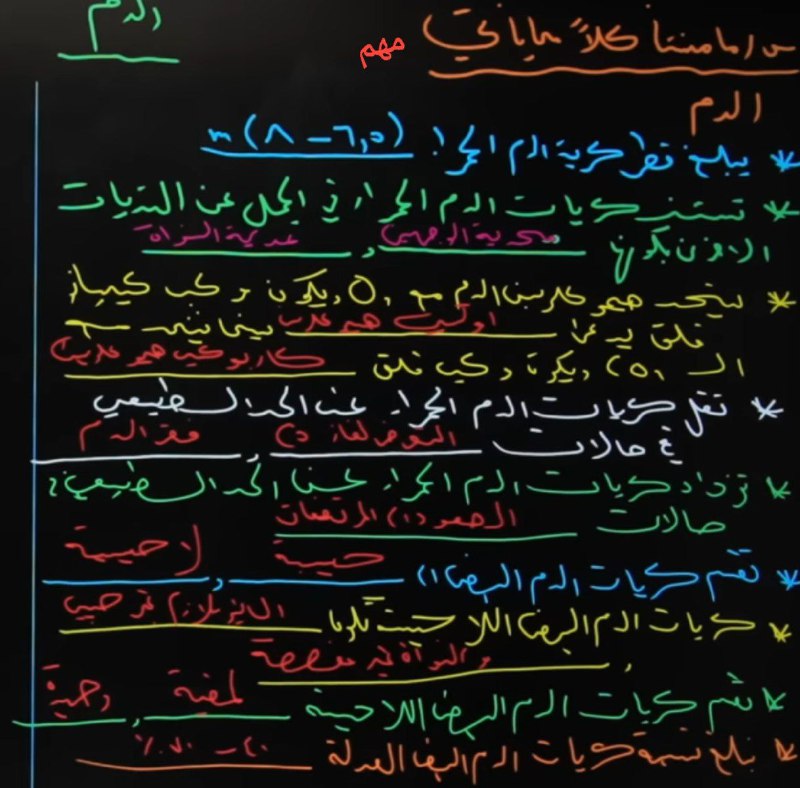 الدم
مهم
س / املأ منتا كلاً مما يأتي
الدم
* يبلغ قطر كرية الدم الحمراء (٦,٥ – ٨) m
* تستند كريات الدم الحمراء في الحمل عن الثديات
الأخرى بكونها محدبة الوجهين , عديمة النواة
* يتحد هيموكلوبين الدم مع O₂ ويكون مركب كيمياوي
قلق يدعى اوكسي هيموكلوبين بينما يتحد مع
الـ CO₂ ويكون مركب قلق كاربوكسي هيموكلوبين
* تقل كريات الدم الحمراء عن الحد الطبيعي
في حالات التعرض لغاز CO , فقر الدم
* تزداد كريات الدم الحمراء عن الحد الطبيعي في
حالات الصعود الى المرتفعات
* تقسم كريات الدم البيضاء الى حبيبية , لا حبيبية
* كريات الدم البيضاء اللا حبيبية تكون السايتوبلازم غير حبيبي
, والنواة غير مفصصة
* تقسم كريات الدم البيضاء اللاحبيبية لمفية , وحيدة
* تبلغ نسبة كريات الدم البيضاء العدلة ٦٠ – ٧٠٪